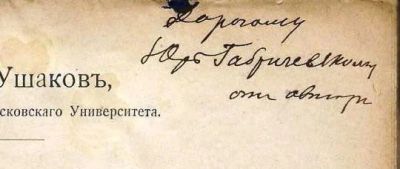 Дорогому
Юрѣ Габричевскому
отъ автора
Ушаковъ,
сковскаго Университета.